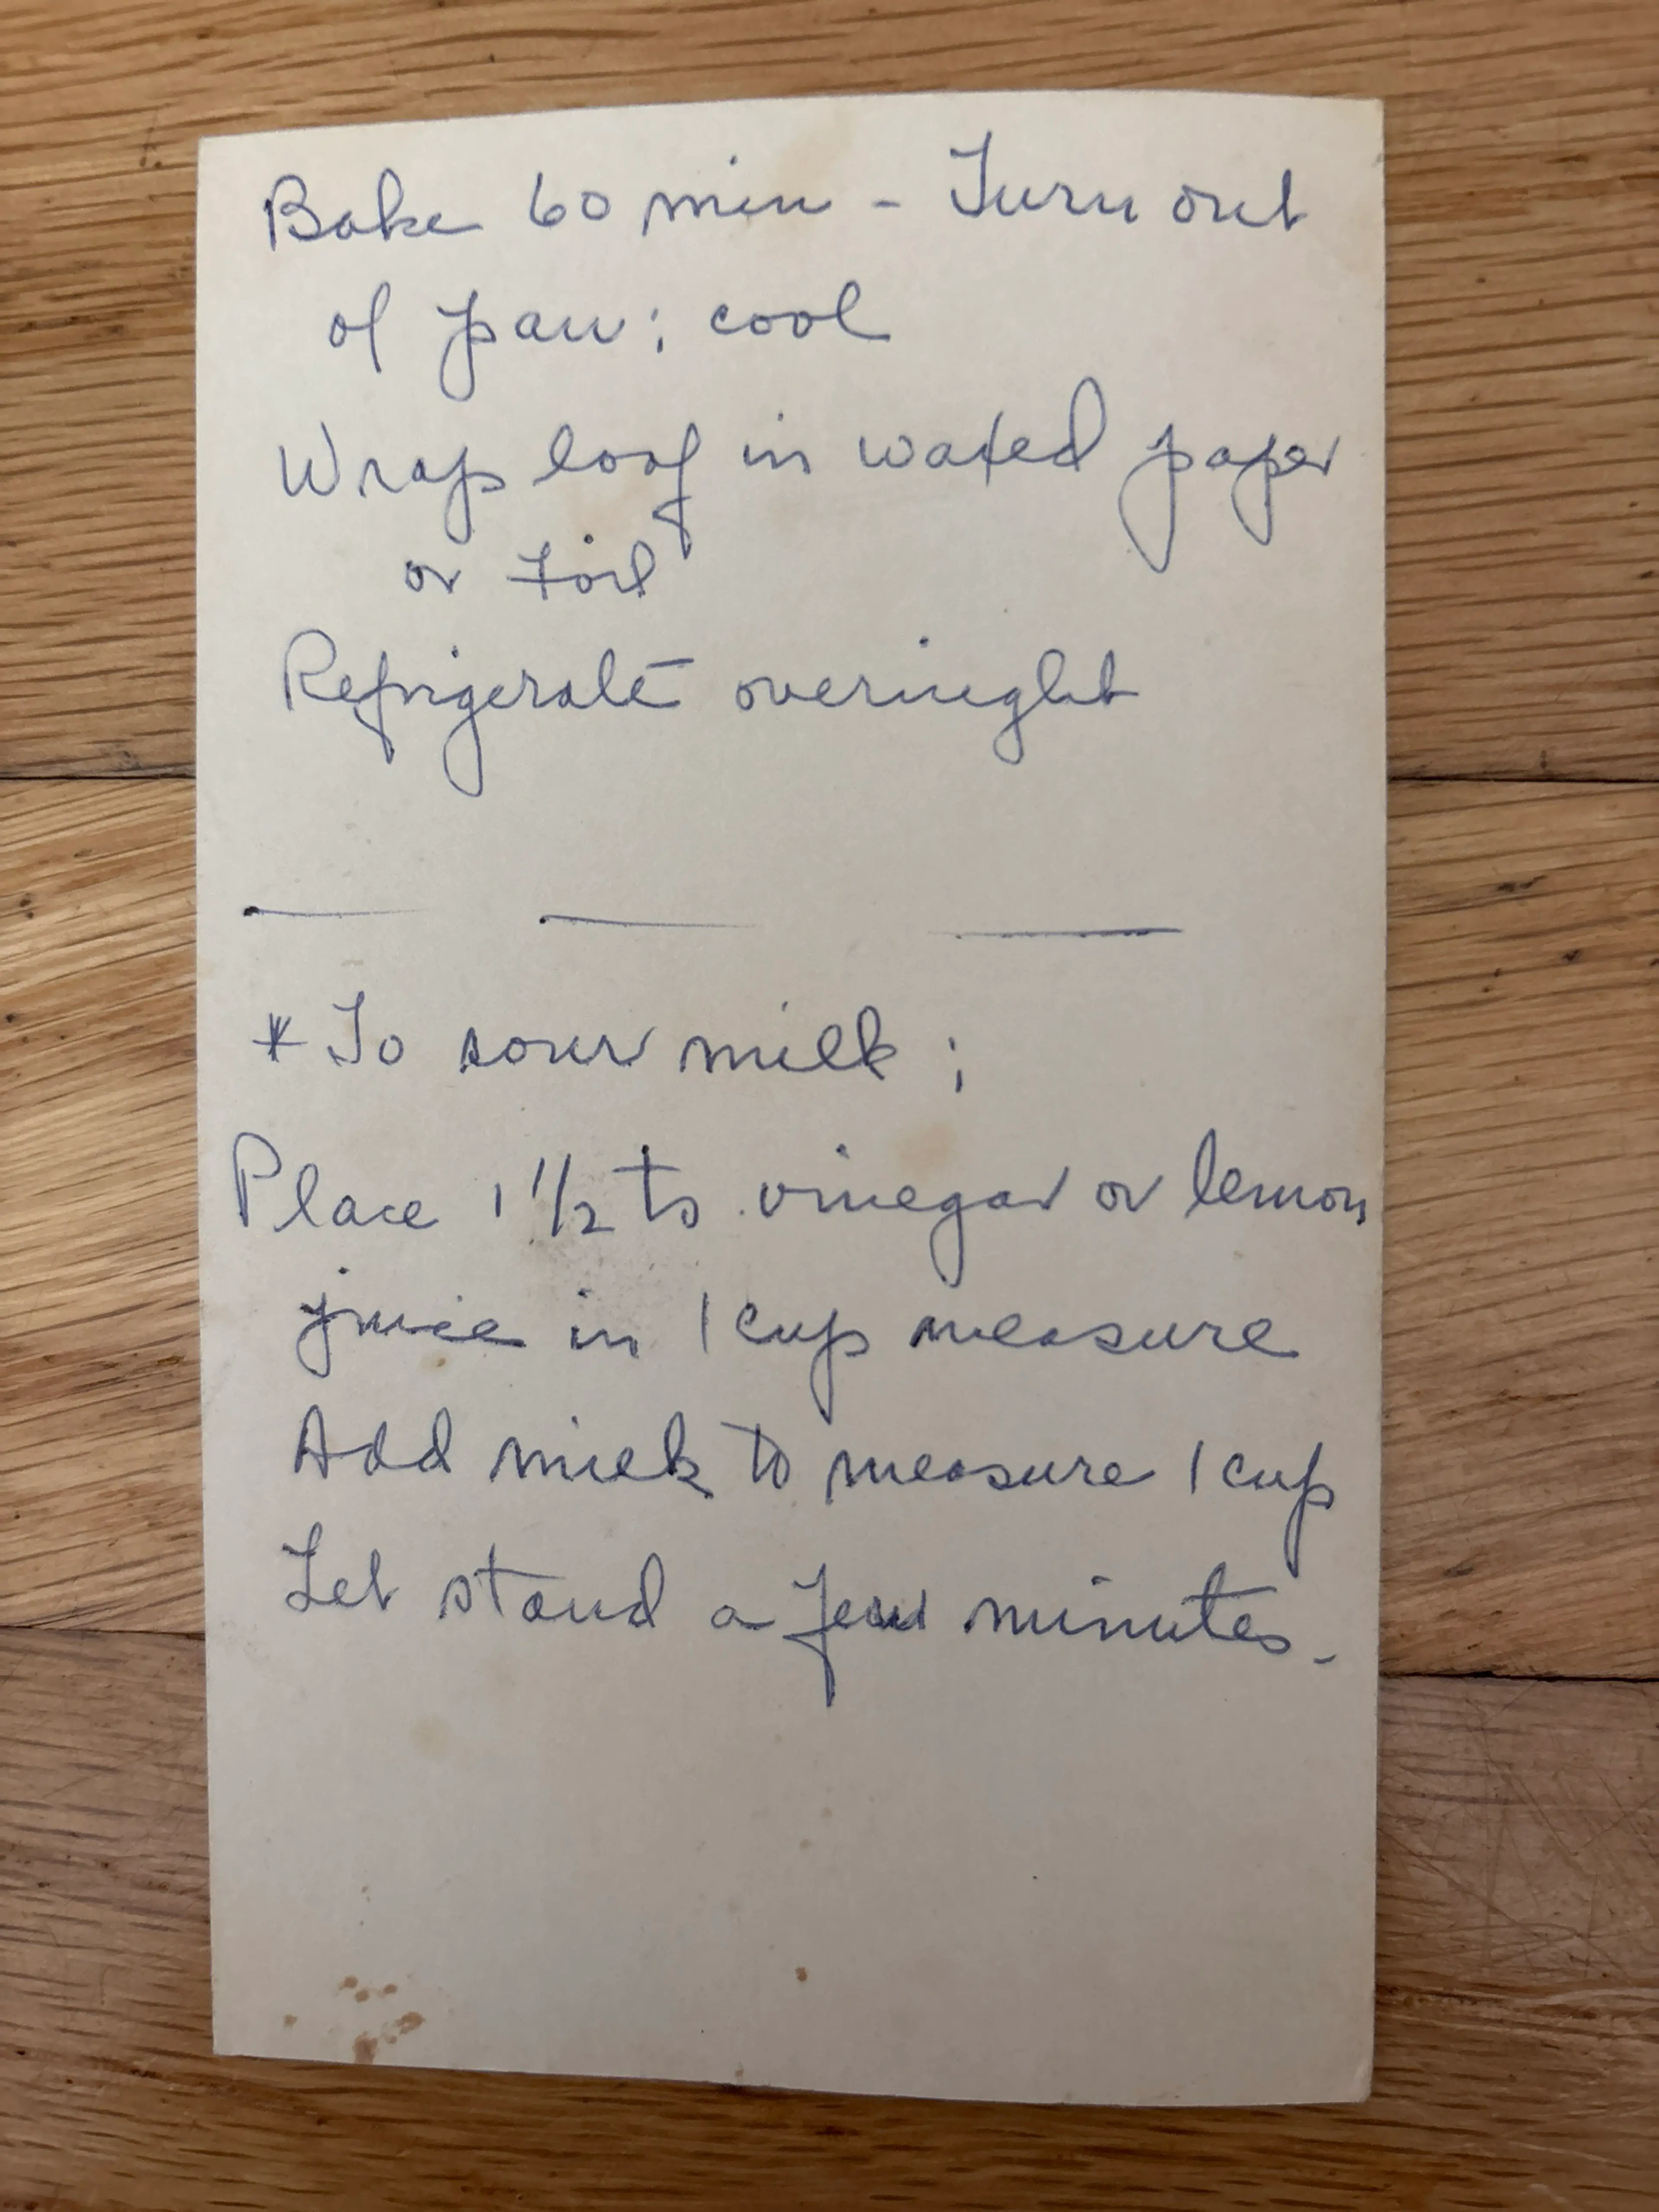 Bake 60 min - Turn out
of pan; cool
Wrap loaf in waxed paper
or foil
Refrigerate overnight
* To sour milk;
Place 1 1/2 ts vinegar or lemon
juice in 1 cup measure
Add milk to measure 1 cup
Let stand a few minutes.